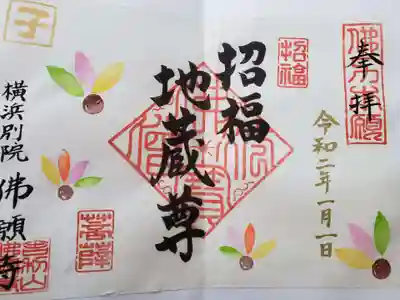 奉拝
令和二年一月一日
招福
招福
地蔵尊
子
横浜別院
佛願寺